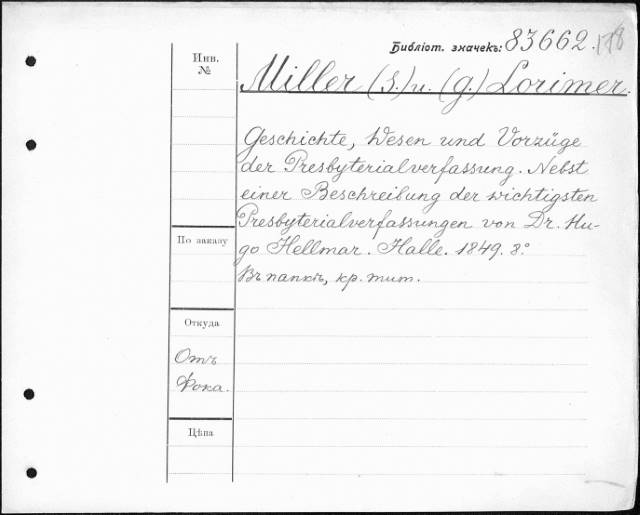 Библіот. значекъ: 83662.
178
Инв.
№
Miller (S.) u. (G.) Lorimer.
Geschichte, Wesen und Vorzüge
der Presbyterialverfassung. Nebst
einer Beschreibung der wichtigsten
Presbyterialverfassungen von Dr. Hu-
go Hellmar. Halle. 1849. 8.°
Въ папкѣ, кр. тит.
По заказу
Откуда
Отъ
Фока.
Цѣна